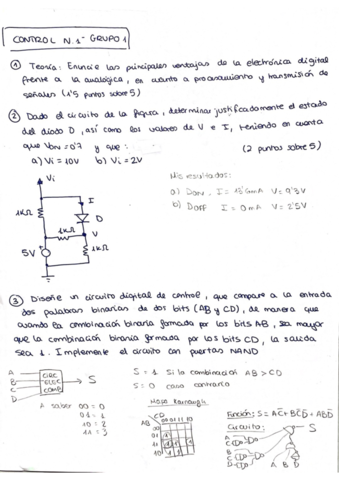 CONTROL N.1 - GRUPO 1
① Teoría: Enuncie las principales ventajas de la electrónica digital
frente a la analógica, en cuanto a procesamiento y transmisión de
señales (1'5 puntos sobre 5)
② Dado el circuito de la figura, determinar justificadamente el estado
del diodo D, así como los valores de V e I, teniendo en cuenta
que VON=0'7 y que:
(2 puntos sobre 5)
a) Vi = 10V b) Vi = 2V
Mis resultados:
a) DON, V= 9'3V
b) DOFF I = 0mA V= 2'5V
Vi
I
1KΩ
D
1KΩ
V
5V
1KΩ
③ Diseñe un circuito digital de control, que compare a la entrada
dos palabras binarias de dos bits (AB y CD), de manera que
cuando la combinación binaria formada por los bits AB, sea mayor
que la combinación binaria formada por los bits CD, la salida
sea 1. Implemente el circuito con puertas NAND
A
B
C
D
S
S = 1 Si la combinación AB > CD
S = 0 caso contrario
A saber 00 = 0
01 = 1
10 = 2
11 = 3
Mapa Karnaugh
CD
AB
Función: S =
Circuito:
S